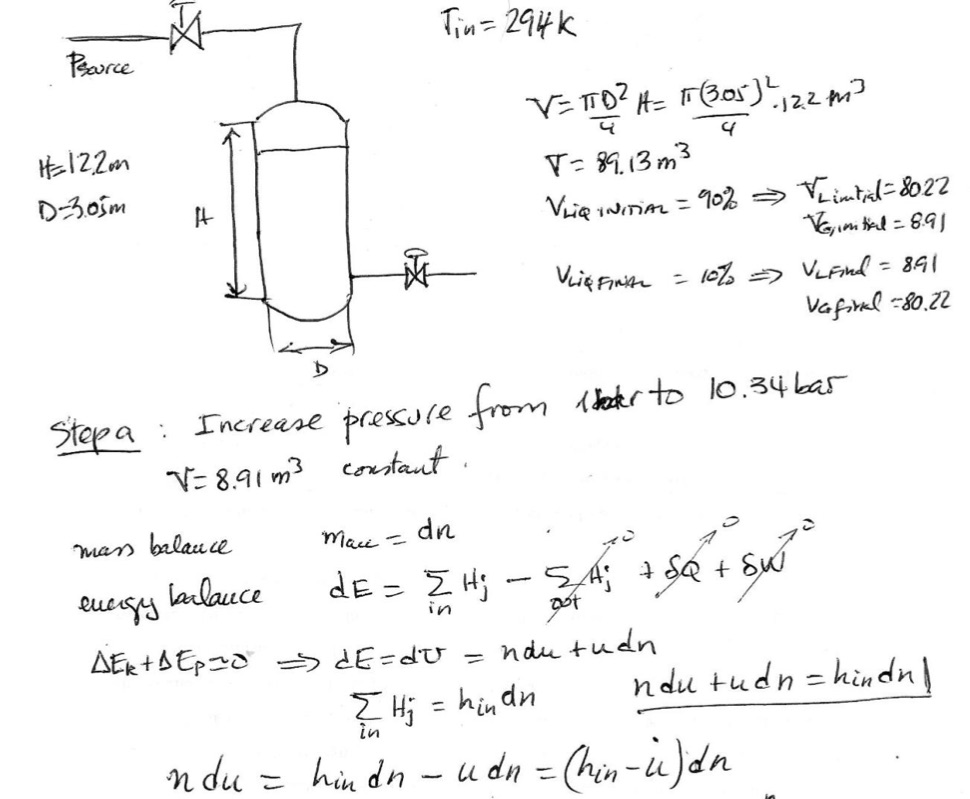 T_in = 294 K
P_source
V = πD²/4 H = π(3.05)²/4 · 12.2 m³
V = 89.13 m³
H = 12.2 m
D = 3.05 m
H
V_LIQ INITIAL = 90% ⇒ V_L initial = 80.22
V_G, initial = 8.91
V_LIQ FINAL = 10% ⇒ V_L Final = 8.91
V_G final = 80.22
D
Step a : Increase pressure from to 10.34 bar
V = 8.91 m³ constant.
mass balance m_acc = dn
energy balance dE = Σ_in H_j − Σ_out H_j 0 + δQ 0 + δW 0
ΔE_k + ΔE_p ≃ 0 ⇒ dE = dU = n du + u dn
Σ_in H_j = h_in dn
n du + u dn = h_in dn
n du = h_in dn − u dn = (h_in − u) dn